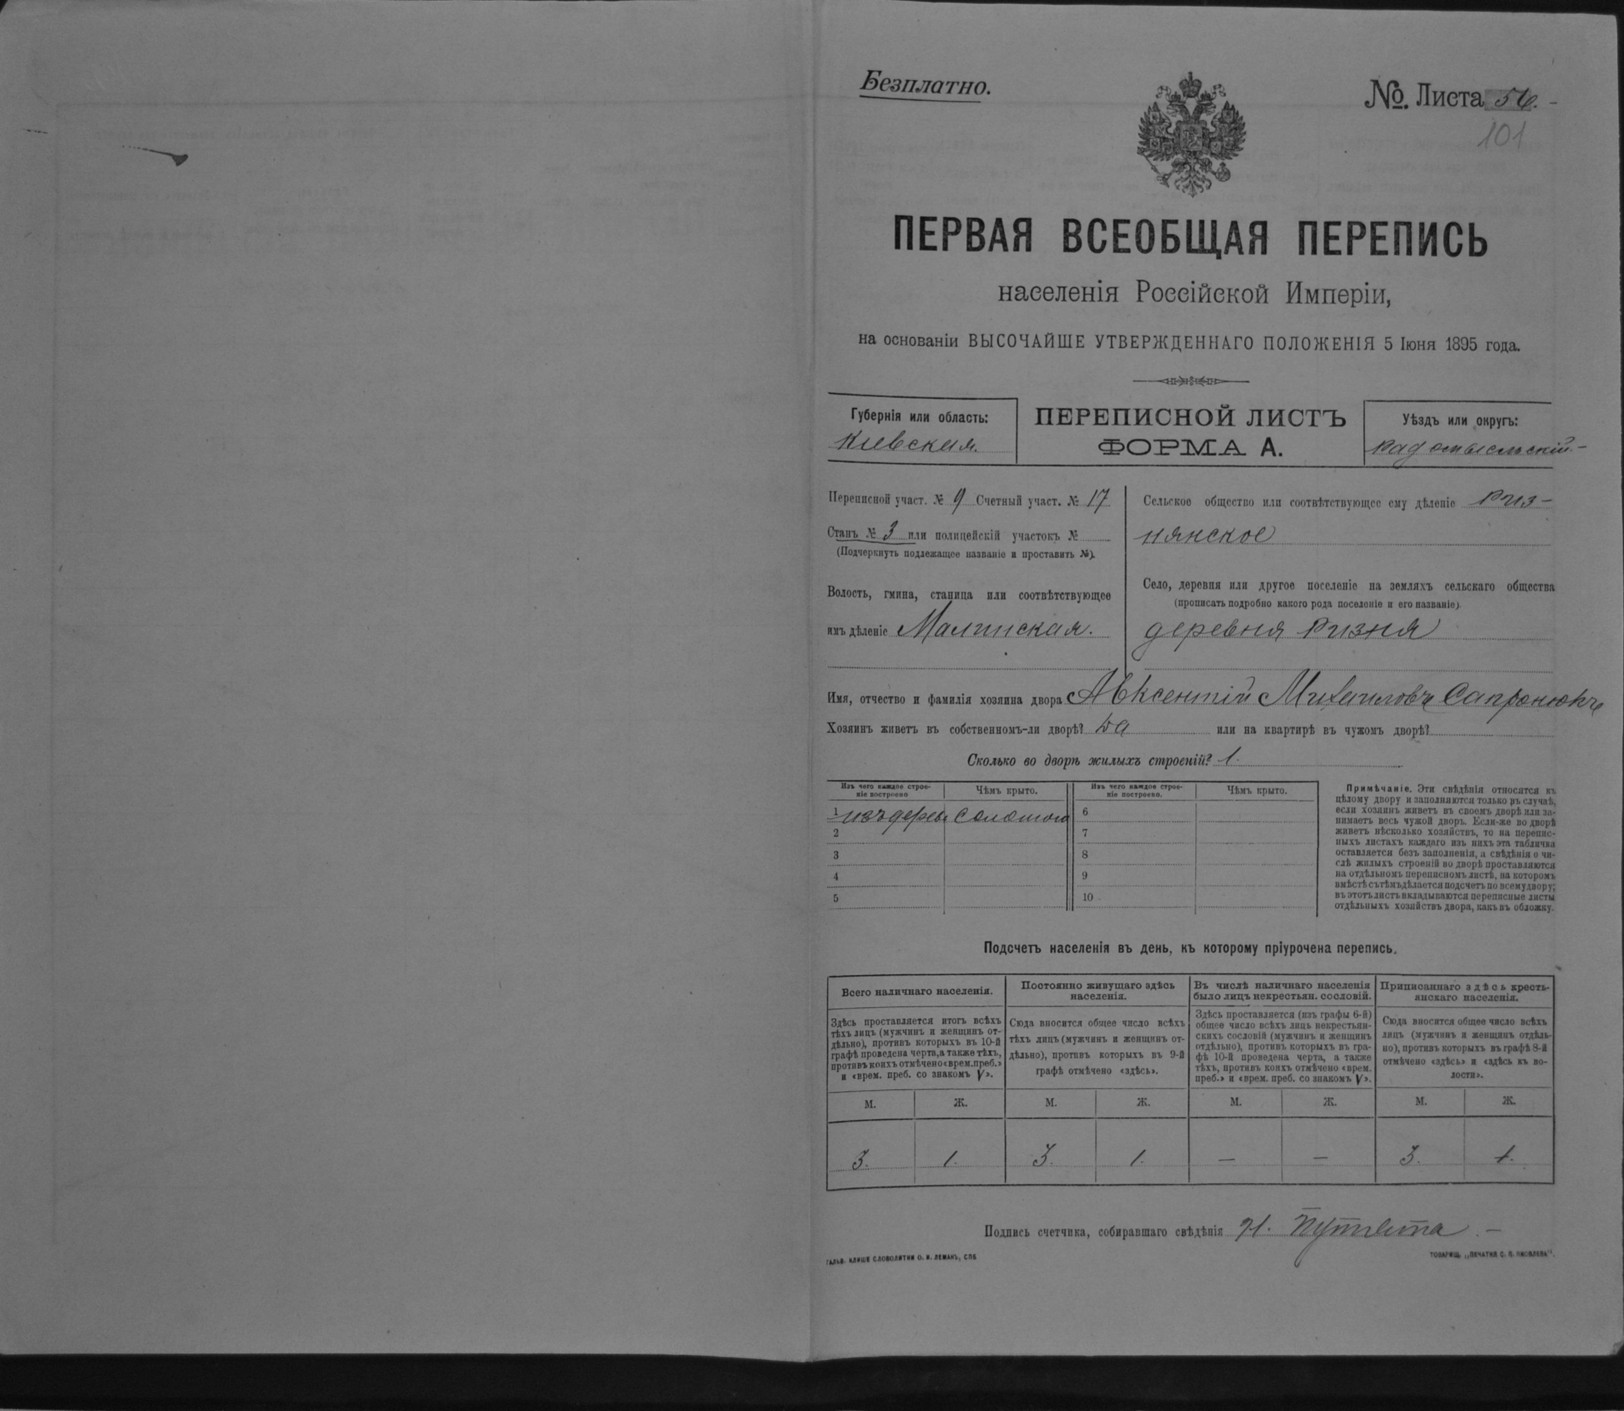 Безплатно.
№. Листа 56.
101
ПЕРВАЯ ВСЕОБЩАЯ ПЕРЕПИСЬ
населенія Россійской Имперіи,
на основаніи ВЫСОЧАЙШЕ УТВЕРЖДЕННАГО ПОЛОЖЕНІЯ 5 Іюня 1895 года.
Губернія или область:
Кіевская.
ПЕРЕПИСНОЙ ЛИСТЪ
ФОРМА А.
Уѣздъ или округъ:
Радомысльскій
Переписной участ. № 9 Счетный участ. № 17
Станъ № 3 или полицейскій участокъ №
(Подчеркнуть подлежащее названіе и проставить №).
Волость, гмина, станица или соотвѣтствующее
имъ дѣленіе Малинская.
Сельское общество или соотвѣтствующее ему дѣленіе Риз-
нянское
Село, деревня или другое поселеніе на земляхъ сельскаго общества
(прописать подробно какого рода поселеніе и его названіе)
деревня Ризня
Имя, отчество и фамилія хозяина двора Авксентій Михаиловъ Сапронюкъ
Хозяинъ живетъ въ собственномъ-ли дворѣ? Да или на квартирѣ въ чужомъ дворѣ?
Сколько во дворѣ жилыхъ строеній? 1.
Изъ чего каждое строе-
ніе построено
Чѣмъ крыто.
Изъ чего каждое строе-
ніе построено.
Чѣмъ крыто.
1 изъ дерева соломою
2
3
4
5
6
7
8
9
10
Примѣчаніе. Эти свѣдѣнія относятся къ
цѣлому двору и заполняются только въ случаѣ,
если хозяинъ живетъ въ своемъ дворѣ или за-
нимаетъ весь чужой дворъ. Если-же во дворѣ
живетъ нѣсколько хозяйствъ, то на перепис-
ныхъ листахъ каждаго изъ нихъ эта табличка
оставляется безъ заполненія, а свѣдѣнія о чи-
слѣ жилыхъ строеній во дворѣ проставляются
на отдѣльномъ переписномъ листѣ, на которомъ
вмѣстѣ съ тѣмъ дѣлается подсчетъ по всему двору;
въ этотъ листъ вкладываются переписные листы
отдѣльныхъ хозяйствъ двора, какъ въ обложку.
Подсчетъ населенія въ день, къ которому пріурочена перепись.
Всего наличнаго населенія.
Здѣсь проставляется итогъ всѣхъ
тѣхъ лицъ (мужчинъ и женщинъ от-
дѣльно), противъ которыхъ въ 10-й
графѣ проведена черта, а также тѣхъ,
противъ коихъ отмѣчено «врем. преб.»
и «врем. преб. со знакомъ V».
Постоянно живущаго здѣсь
населенія.
Сюда вносится общее число всѣхъ
тѣхъ лицъ (мужчинъ и женщинъ от-
дѣльно), противъ которыхъ въ 9-й
графѣ отмѣчено «здѣсь».
Въ числѣ наличнаго населенія
было лицъ некрестьян. сословій.
Здѣсь проставляется (изъ графы 6-й)
общее число всѣхъ лицъ некрестьян-
скихъ сословій (мужчинъ и женщинъ
отдѣльно), противъ которыхъ въ гра-
фѣ 10-й проведена черта, а также
тѣхъ, противъ коихъ отмѣчено «врем.
преб.» и «врем. преб. со знакомъ V».
Приписаннаго здѣсь кресть-
янскаго населенія.
Сюда вносится общее число всѣхъ
лицъ (мужчинъ и женщинъ отдѣль-
но), противъ которыхъ въ графѣ 8-й
отмѣчено «здѣсь» и «здѣсь къ во-
лости».
М. Ж. М. Ж. М. Ж. М. Ж.
3. 1. 3. 1. — — 3. 1.
Подпись счетчика, собиравшаго свѣдѣнія Н. Путята
ГАЛЬВ. КЛИШЕ СЛОВОЛИТНИ О. И. ЛЕМАНЪ, СПБ
ТОВАРИЩ. „ПЕЧАТНЯ С. П. ЯКОВЛЕВА“.